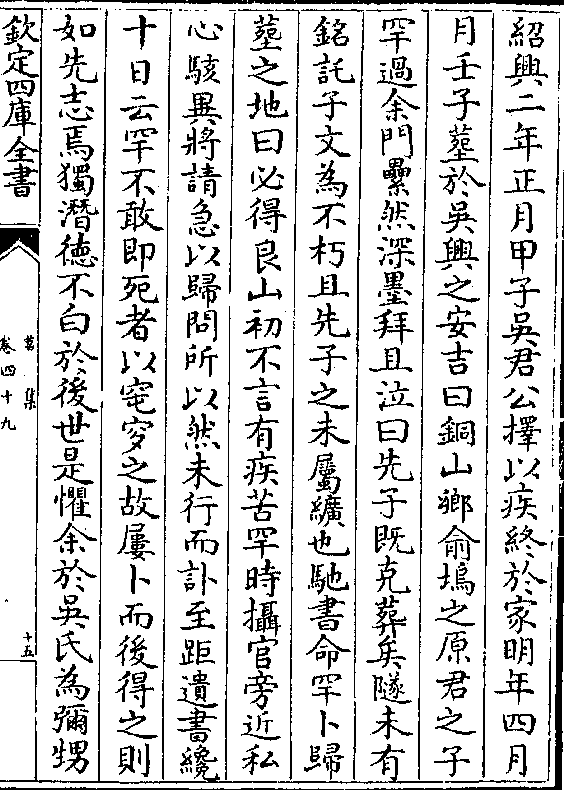 紹興二年正月甲子吳君公擇以疾終於家明年四月
月壬子塟於吳興之安吉曰銅山鄉俞塢之原君之子
罕過余門纍然深墨拜且泣曰先子既克葬矣隧未有
銘託子文為不朽且先子之未屬纊也馳書命罕卜歸
塟之地曰必得良山初不言有疾苦罕時攝官旁近私
心駭異將請急以歸問所以然未行而訃至距遺書纔
十日云罕不敢即死者以窀穸之故屢卜而後得之則
如先志焉獨潛德不白於後世是懼余於吳氏為彌甥
欽定四庫全書
集
卷四十九
十五